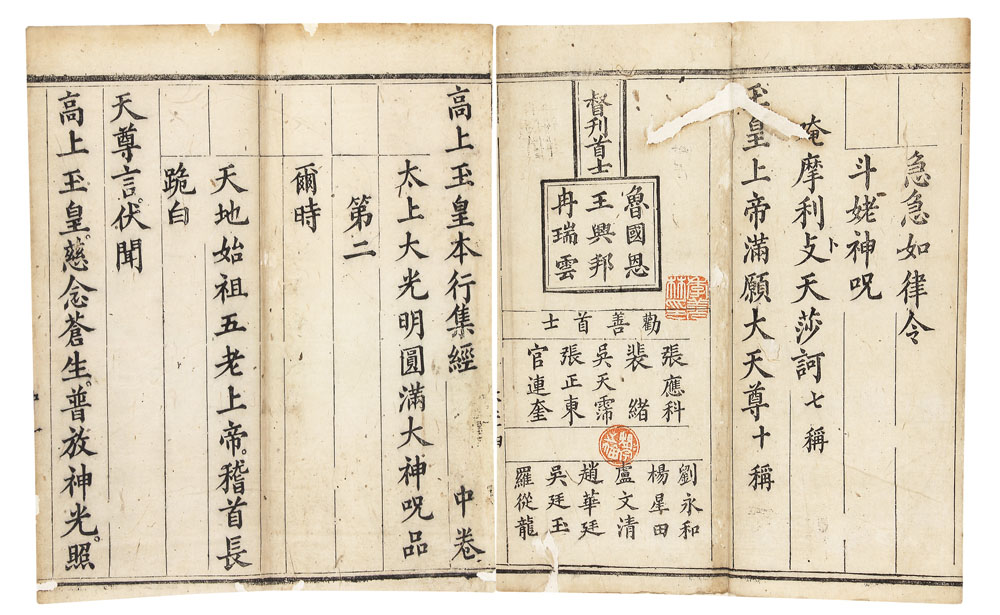 急急如律令
斗姥神呪
唵摩利攴天莎訶七稱
卜
玉皇上帝滿願大天尊十稱
督刋首士
魯國恩
王興邦
冉瑞雲
勸善首士
張應科
裴緒
吳天霈
張正東
官連奎
劉永和
楊犀田
盧文清
趙華廷
吳廷玉
羅從龍
高上玉皇本行集經 中卷
太上大光明圓滿大神呪品
第二
爾時
天地始祖五老上帝。稽首長
跪白
天尊言。伏聞
高上玉皇。慈念蒼生。普放神光。照